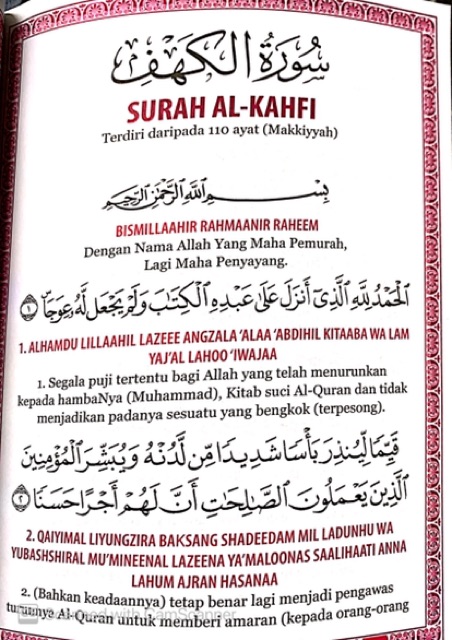 سُورَةُ الْكَهْفِ
SURAH AL-KAHFI
Terdiri daripada 110 ayat (Makkiyyah)
بِسْمِ اللَّهِ الرَّحْمَٰنِ الرَّحِيمِ
BISMILLAAHIR RAHMAANIR RAHEEM
Dengan Nama Allah Yang Maha Pemurah,
Lagi Maha Penyayang.
الْحَمْدُ لِلَّهِ الَّذِي أَنزَلَ عَلَىٰ عَبْدِهِ الْكِتَابَ وَلَمْ يَجْعَل لَّهُ عِوَجًا ١
1. ALHAMDU LILLAAHIL LAZEEE ANGZALA 'ALAA 'ABDIHIL KITAABA WA LAM
YAJ'AL LAHOO 'IWAJAA
1. Segala puji tertentu bagi Allah yang telah menurunkan
kepada hambaNya (Muhammad), Kitab suci Al-Quran dan tidak
menjadikan padanya sesuatu yang bengkok (terpesong).
قَيِّمًا لِّيُنذِرَ بَأْسًا شَدِيدًا مِّن لَّدُنْهُ وَيُبَشِّرَ الْمُؤْمِنِينَ
الَّذِينَ يَعْمَلُونَ الصَّالِحَاتِ أَنَّ لَهُمْ أَجْرًا حَسَنًا ٢
2. QAIYIMAL LIYUNGZIRA BAKSANG SHADEEDAM MIL LADUNHU WA
YUBASHSHIRAL MU'MINEENAL LAZEENA YA'MALOONAS SAALIHAATI ANNA
LAHUM AJRAN HASANAA
2. (Bahkan keadaannya) tetap benar lagi menjadi pengawas
turunnya Al-Quran untuk memberi amaran (kepada orang-orang
Scanned with CamScanner